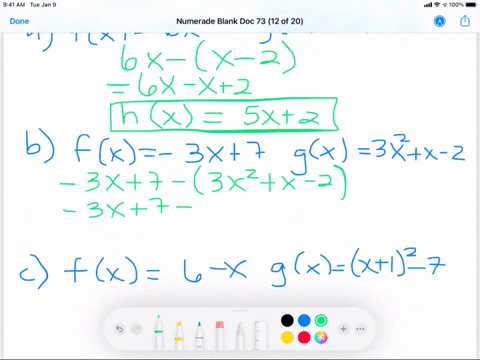 9:41 AM Tue Jan 9
100%
Done Numerade Blank Doc 73 (12 of 20)
6x-(x-2)
=6x-x+2
h(x) = 5x+2
b) f(x)=-3x+7 g(x)=3x²+x-2
-3x+7-(3x²+x-2)
-3x+7-
c) f(x)= 6-x g(x)=(x+1)²-7